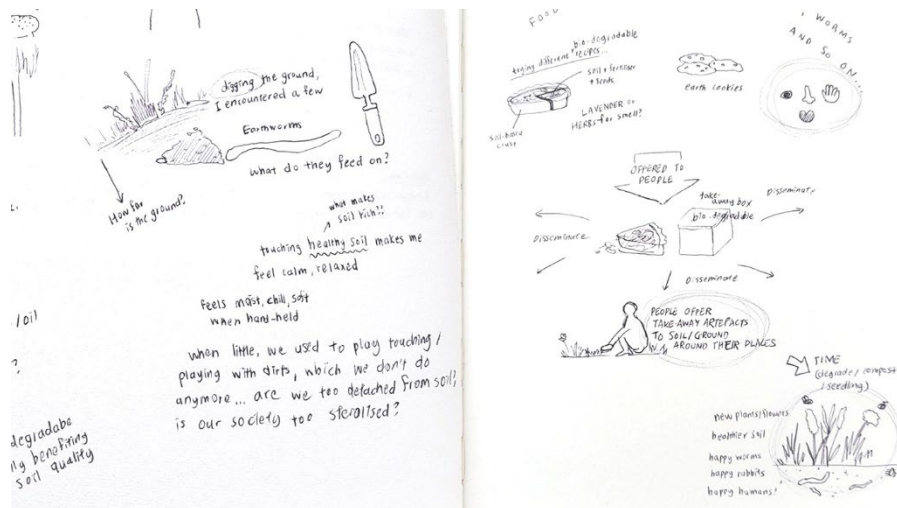 digging the ground,
I encountered a few
Earthworms
what do they feed on?
How far
is the ground?
what makes
soil rich??
touching healthy soil makes me
feel calm, relaxed
feels moist, chill, soft
when hand-held
when little, we used to play touching/
playing with dirts, which we don't do
anymore... are we too detached from soil?
is our society too sterilised?
/oil
?
degradabe
benefiting
soil quality
FOOD
trying different bio-degradable
recipes...
soil + fertiliser
+ seeds
soil-based
crust
LAVENDER or
HERBS for smell?
earth cookies
WORMS
AND SO ON...
OFFERED TO
PEOPLE
take-
away box
bio-degradable
Disseminate
Disseminate
Disseminate
PEOPLE OFFER
TAKE-AWAY ARTEFACTS
TO SOIL/GROUND
AROUND THEIR PLACES
TIME
(degrade/compost
/seedling)
new plants/flowers
healthier soil
happy worms
happy rabbits
happy humans!